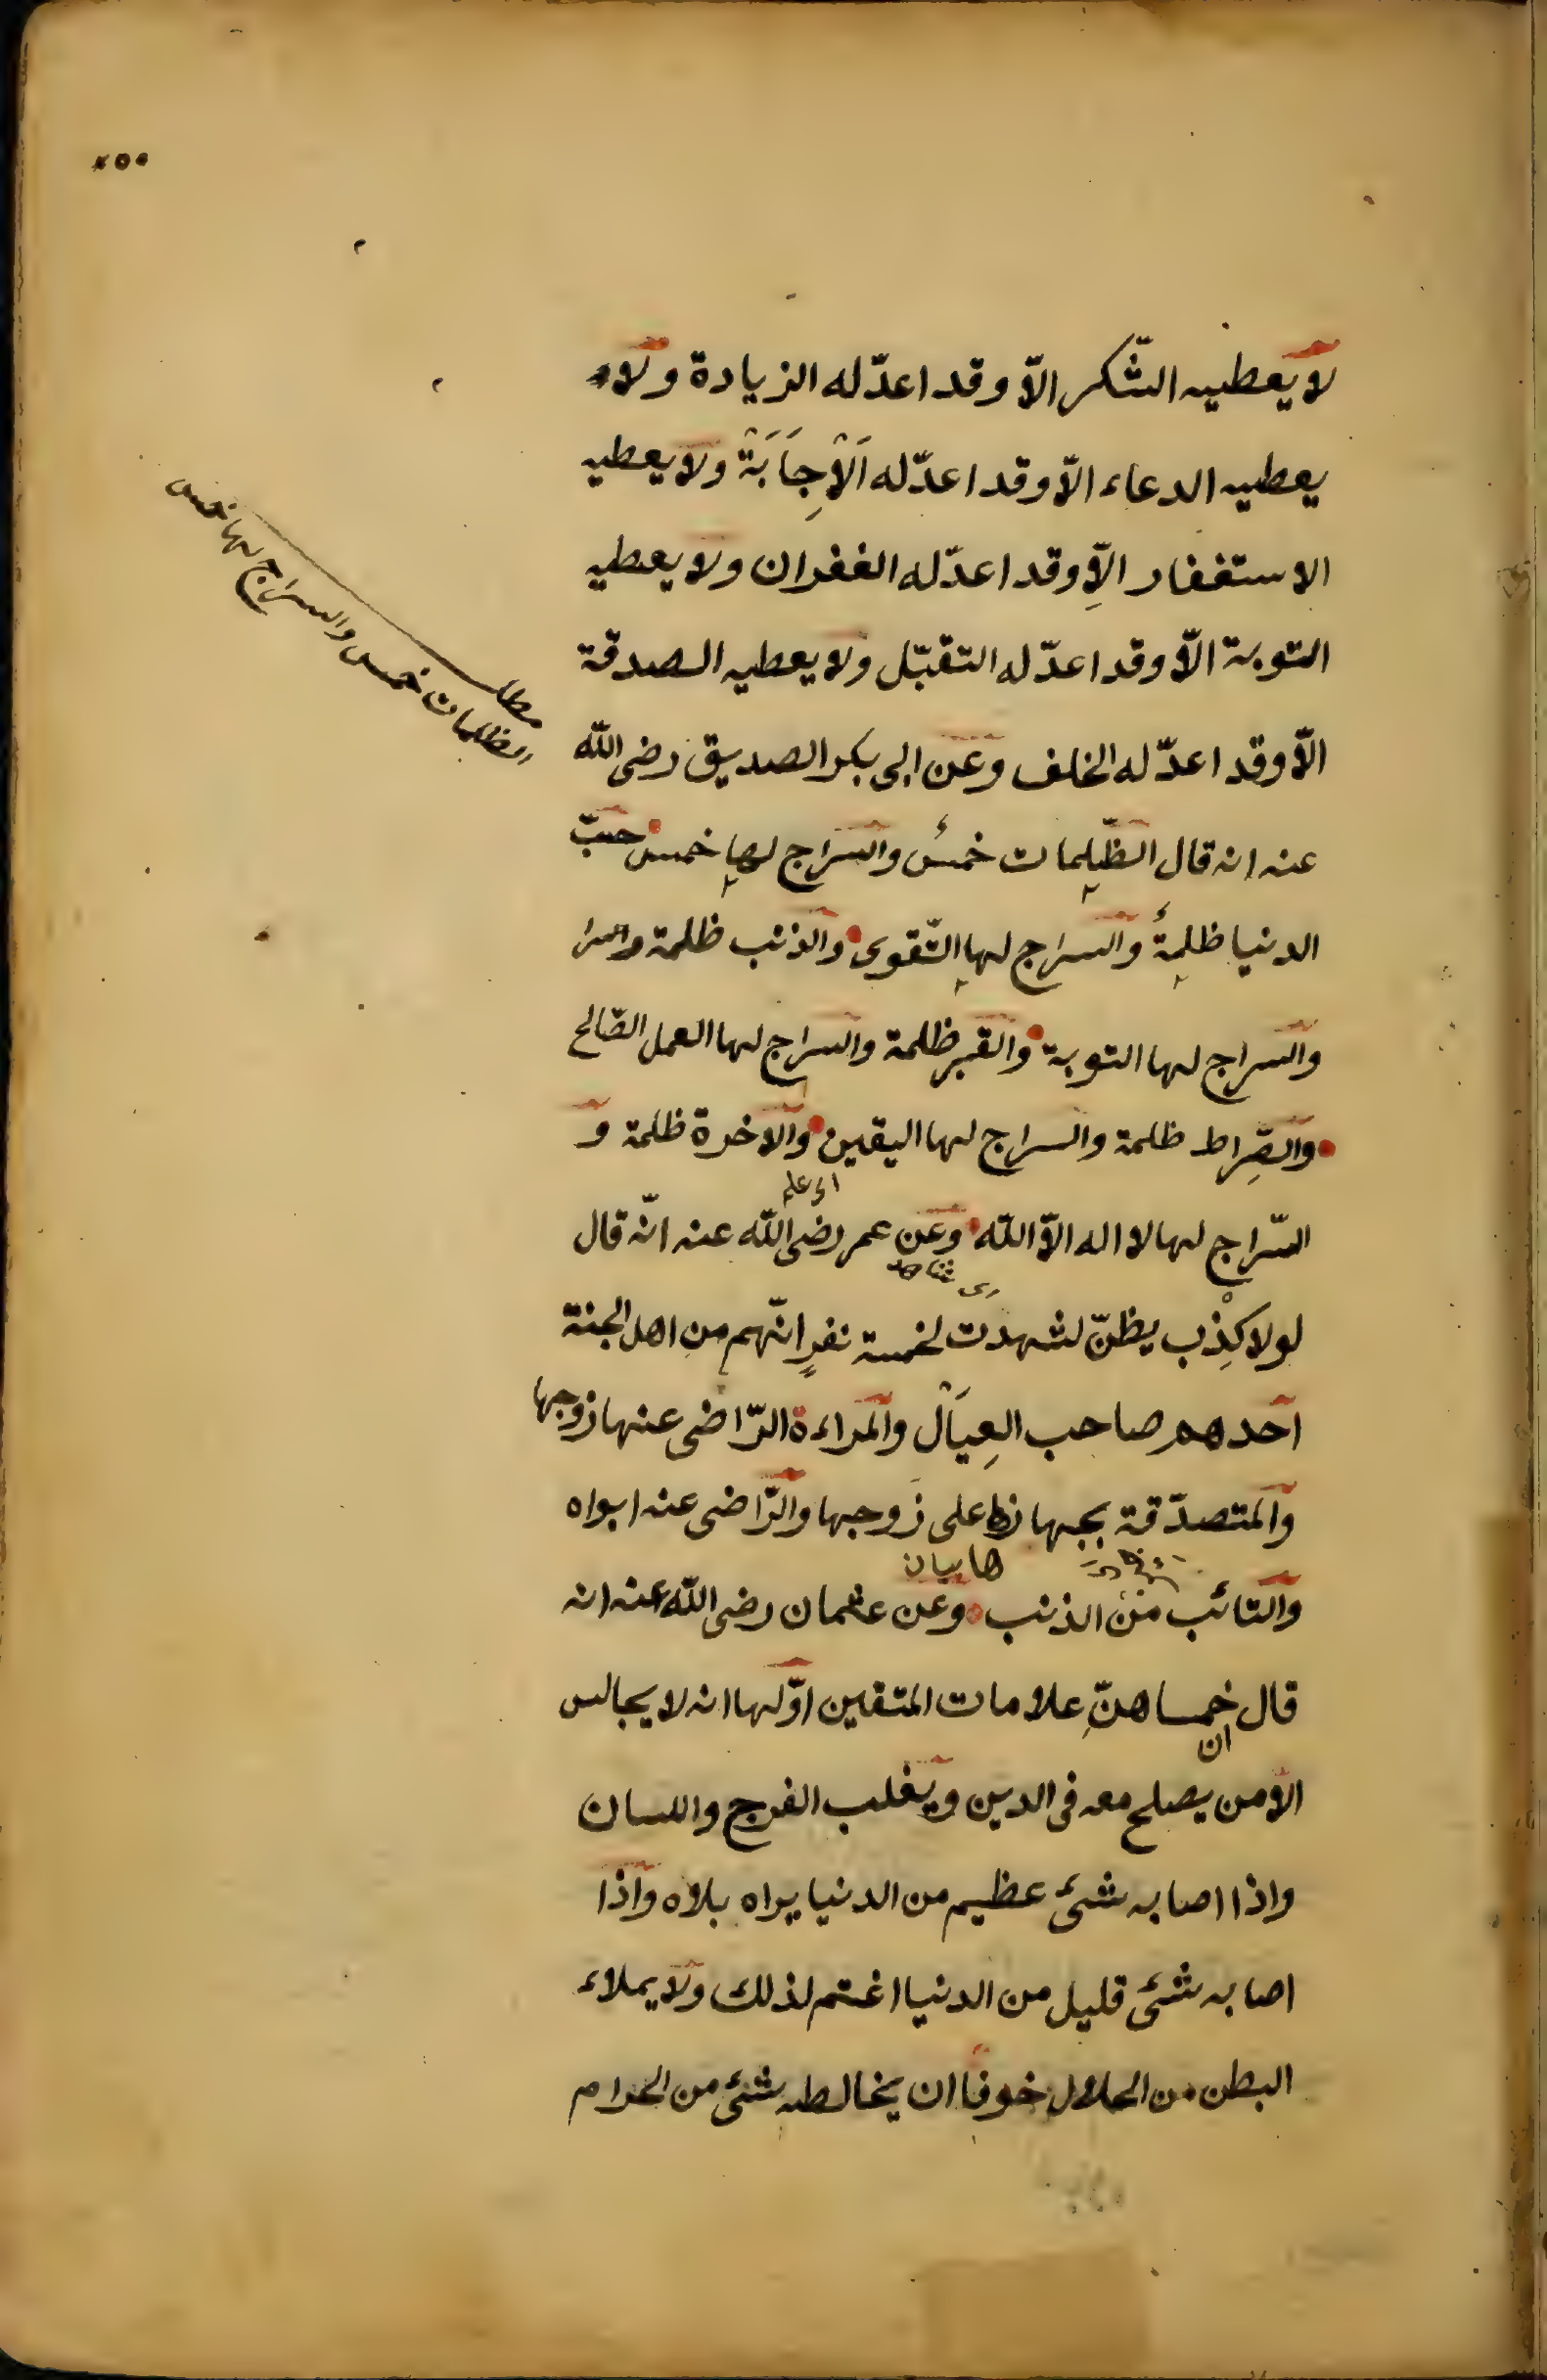 لا يعطيه الشّكر الّا وقد اعدّ له الزيادة ولا
يعطيه الدعاء الّا وقد اعدّ له اَلْاِجَابَةْ ولا يعطيه
الاستغفار الّا وقد اعدّ له الغفران ولا يعطيه
التوبة الّا وقد اعدّ له التقبّل ولا يعطيه الصدقة
الّا وقد اعدّ له الخلف وعن ابى بكر الصديق رضى اللّه
عنه انه قال الظّلمات خمسٌ والسراج لها خمس حبّ
الدنيا ظلمةٌ والسراج لها التّقوى والذنب ظلمة والسرا
والسراج لها التوبة والقبر ظلمة والسراج لها العمل الصّالح
والصِّراط ظلمة والسراج لها اليقين والاخرة ظلمة و
السّراج لها لا اله الّا اللّه وعن عمر رضى اللّه عنه انّه قال
لولا كِذْب يظنّ لشهدت لخمسة نفرٍ انّهم من اهل الجنة
احدهم صاحب العِيَالْ والمراءة الرّاضى عنها زوجها
والمتصدّقة بجبها على زوجها والرّاضى عنه ابواه
هابيان
والتائب من الذنب وعن عثمان رضى اللّه عنه انه
قال خمسا هنّ علامات المتقين اوّلها انه لا يجالس
ان
الّا من يصلح معه فى الدين ويغلب الفرج واللسان
واذا اصابه شىء عظيم من الدنيا يراه بلاه واذا
اصابه شىء قليل من الدنيا اغتم لذلك ولا يملاء
البطن من الحلال خوفا ان يخالطه شىء من الحرام
مطلب
الظلمات خمس والسراج لها خمس